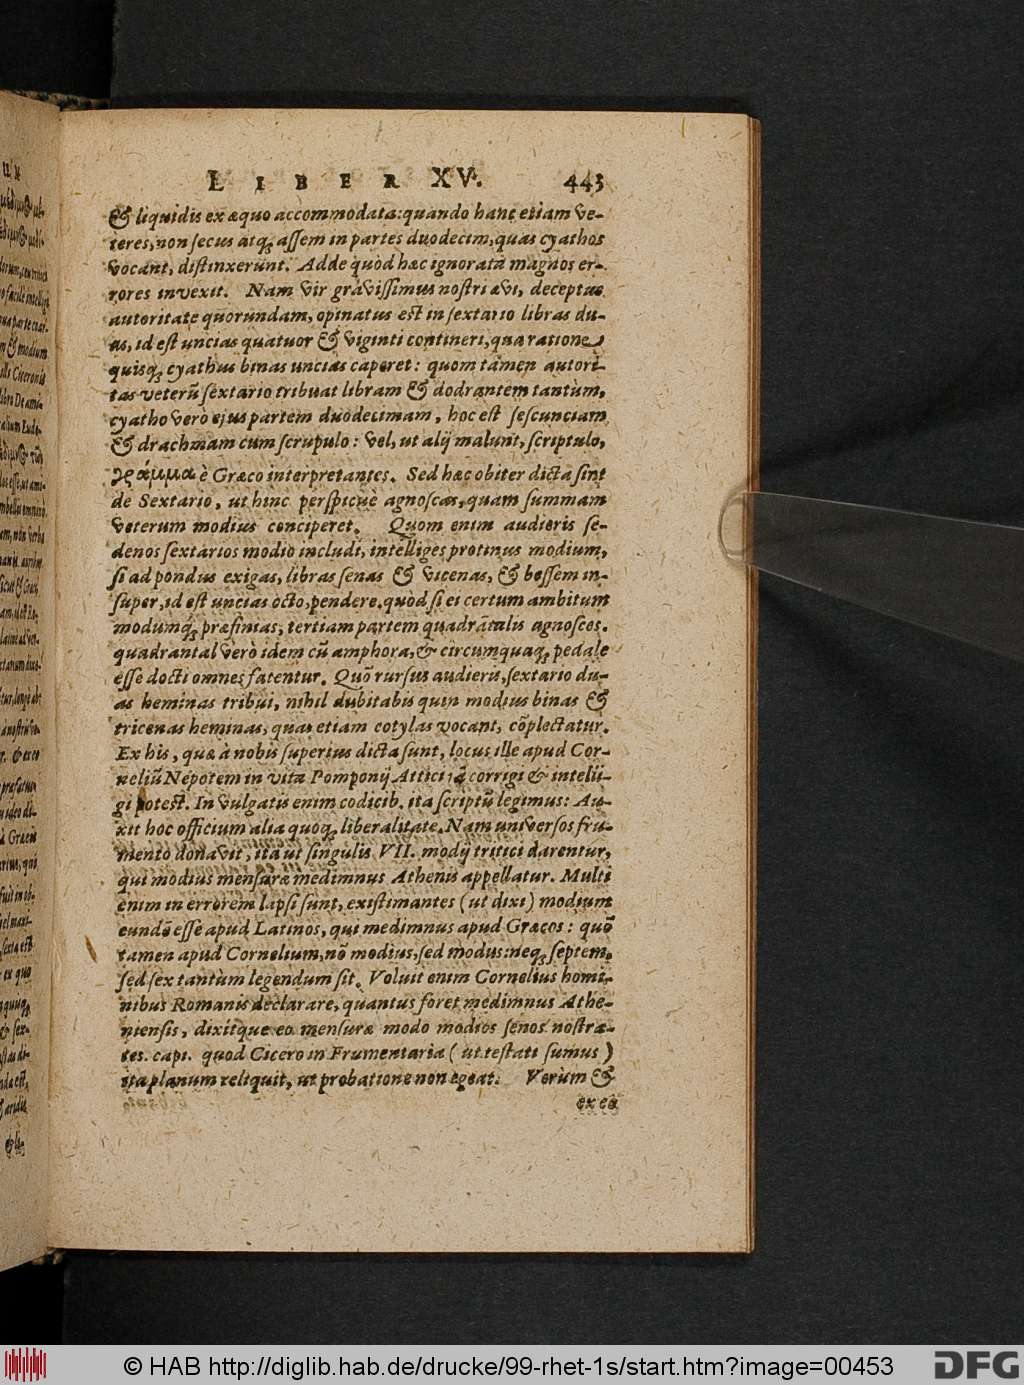 LIBER XV. 443
& liquidis ex æquo accommodata: quando hanc etiam ve-
teres, non secus atq; assem in partes duodecim, quas cyathos
vocant, distinxerunt. Adde quòd hæc ignorata magnos er-
rores invexit. Nam vir gravissimus nostri ævi, deceptus
autoritate quorundam, opinatus est in sextario libras du-
as, id est uncias quatuor & viginti contineri, qua ratione
quisq; cyathus binas uncias caperet: quom tamen autori-
tas veterũ sextario tribuat libram & dodrantem tantùm,
cyatho verò ejus partem duodecimam, hoc est sescunciam
& drachmam cum scrupulo: vel, ut alij malunt, scriptulo,
γράμμα è Græco interpretantes. Sed hæc obiter dicta sint
de Sextario, ut hinc perspicuè agnoscas, quam summam
veterum modius conciperet. Quom enim audieris se-
denos sextarios modio includi, intelliges protinus modium,
si ad pondus exigas, libras senas & vicenas, & bessem in-
super, id est uncias octo, pendere. quòd si ei certum ambitum
modumq; præfinias, tertiam partem quadrãtalis agnosces.
quadrantal verò idem cũ amphora, & circumquaq; pedale
esse docti omnes fatentur. Quõ rursus audieris, sextario du-
as heminas tribui, nihil dubitabis quin modius binas &
tricenas heminas, quas etiam cotylas vocant, cõplectatur.
Ex his, quæ à nobis superius dicta sunt, locus ille apud Cor-
neliũ Nepotem in vita Pomponij Attici iã corrigi & intelli-
gi potest. In vulgatis enim codicib. ita scriptũ legimus: Au-
xit hoc officium alia quoq; liberalitate. Nam universos fru-
mento donavit, ita ut singulis VII. modij tritici darentur,
qui modius mensuræ medimnus Athenis appellatur. Multi
enim in errorem lapsi sunt, existimantes (ut dixi) modium
eundẽ esse apud Latinos, qui medimnus apud Græcos: quõ
tamen apud Cornelium, nõ modius, sed modus: neq; septem,
sed sex tantùm legendum sit. Voluit enim Cornelius homi-
nibus Romanis declarare, quantus foret medimnus Athe-
niensis, dixitque eo mensuræ modo modios senos nostra-
tes. capi. quod Cicero in Frumentaria (ut testati sumus)
ita planum reliquit, ut probatione non egeat. Verùm &
ex ea
© HAB http://diglib.hab.de/drucke/99-rhet-1s/start.htm?image=00453
DFG